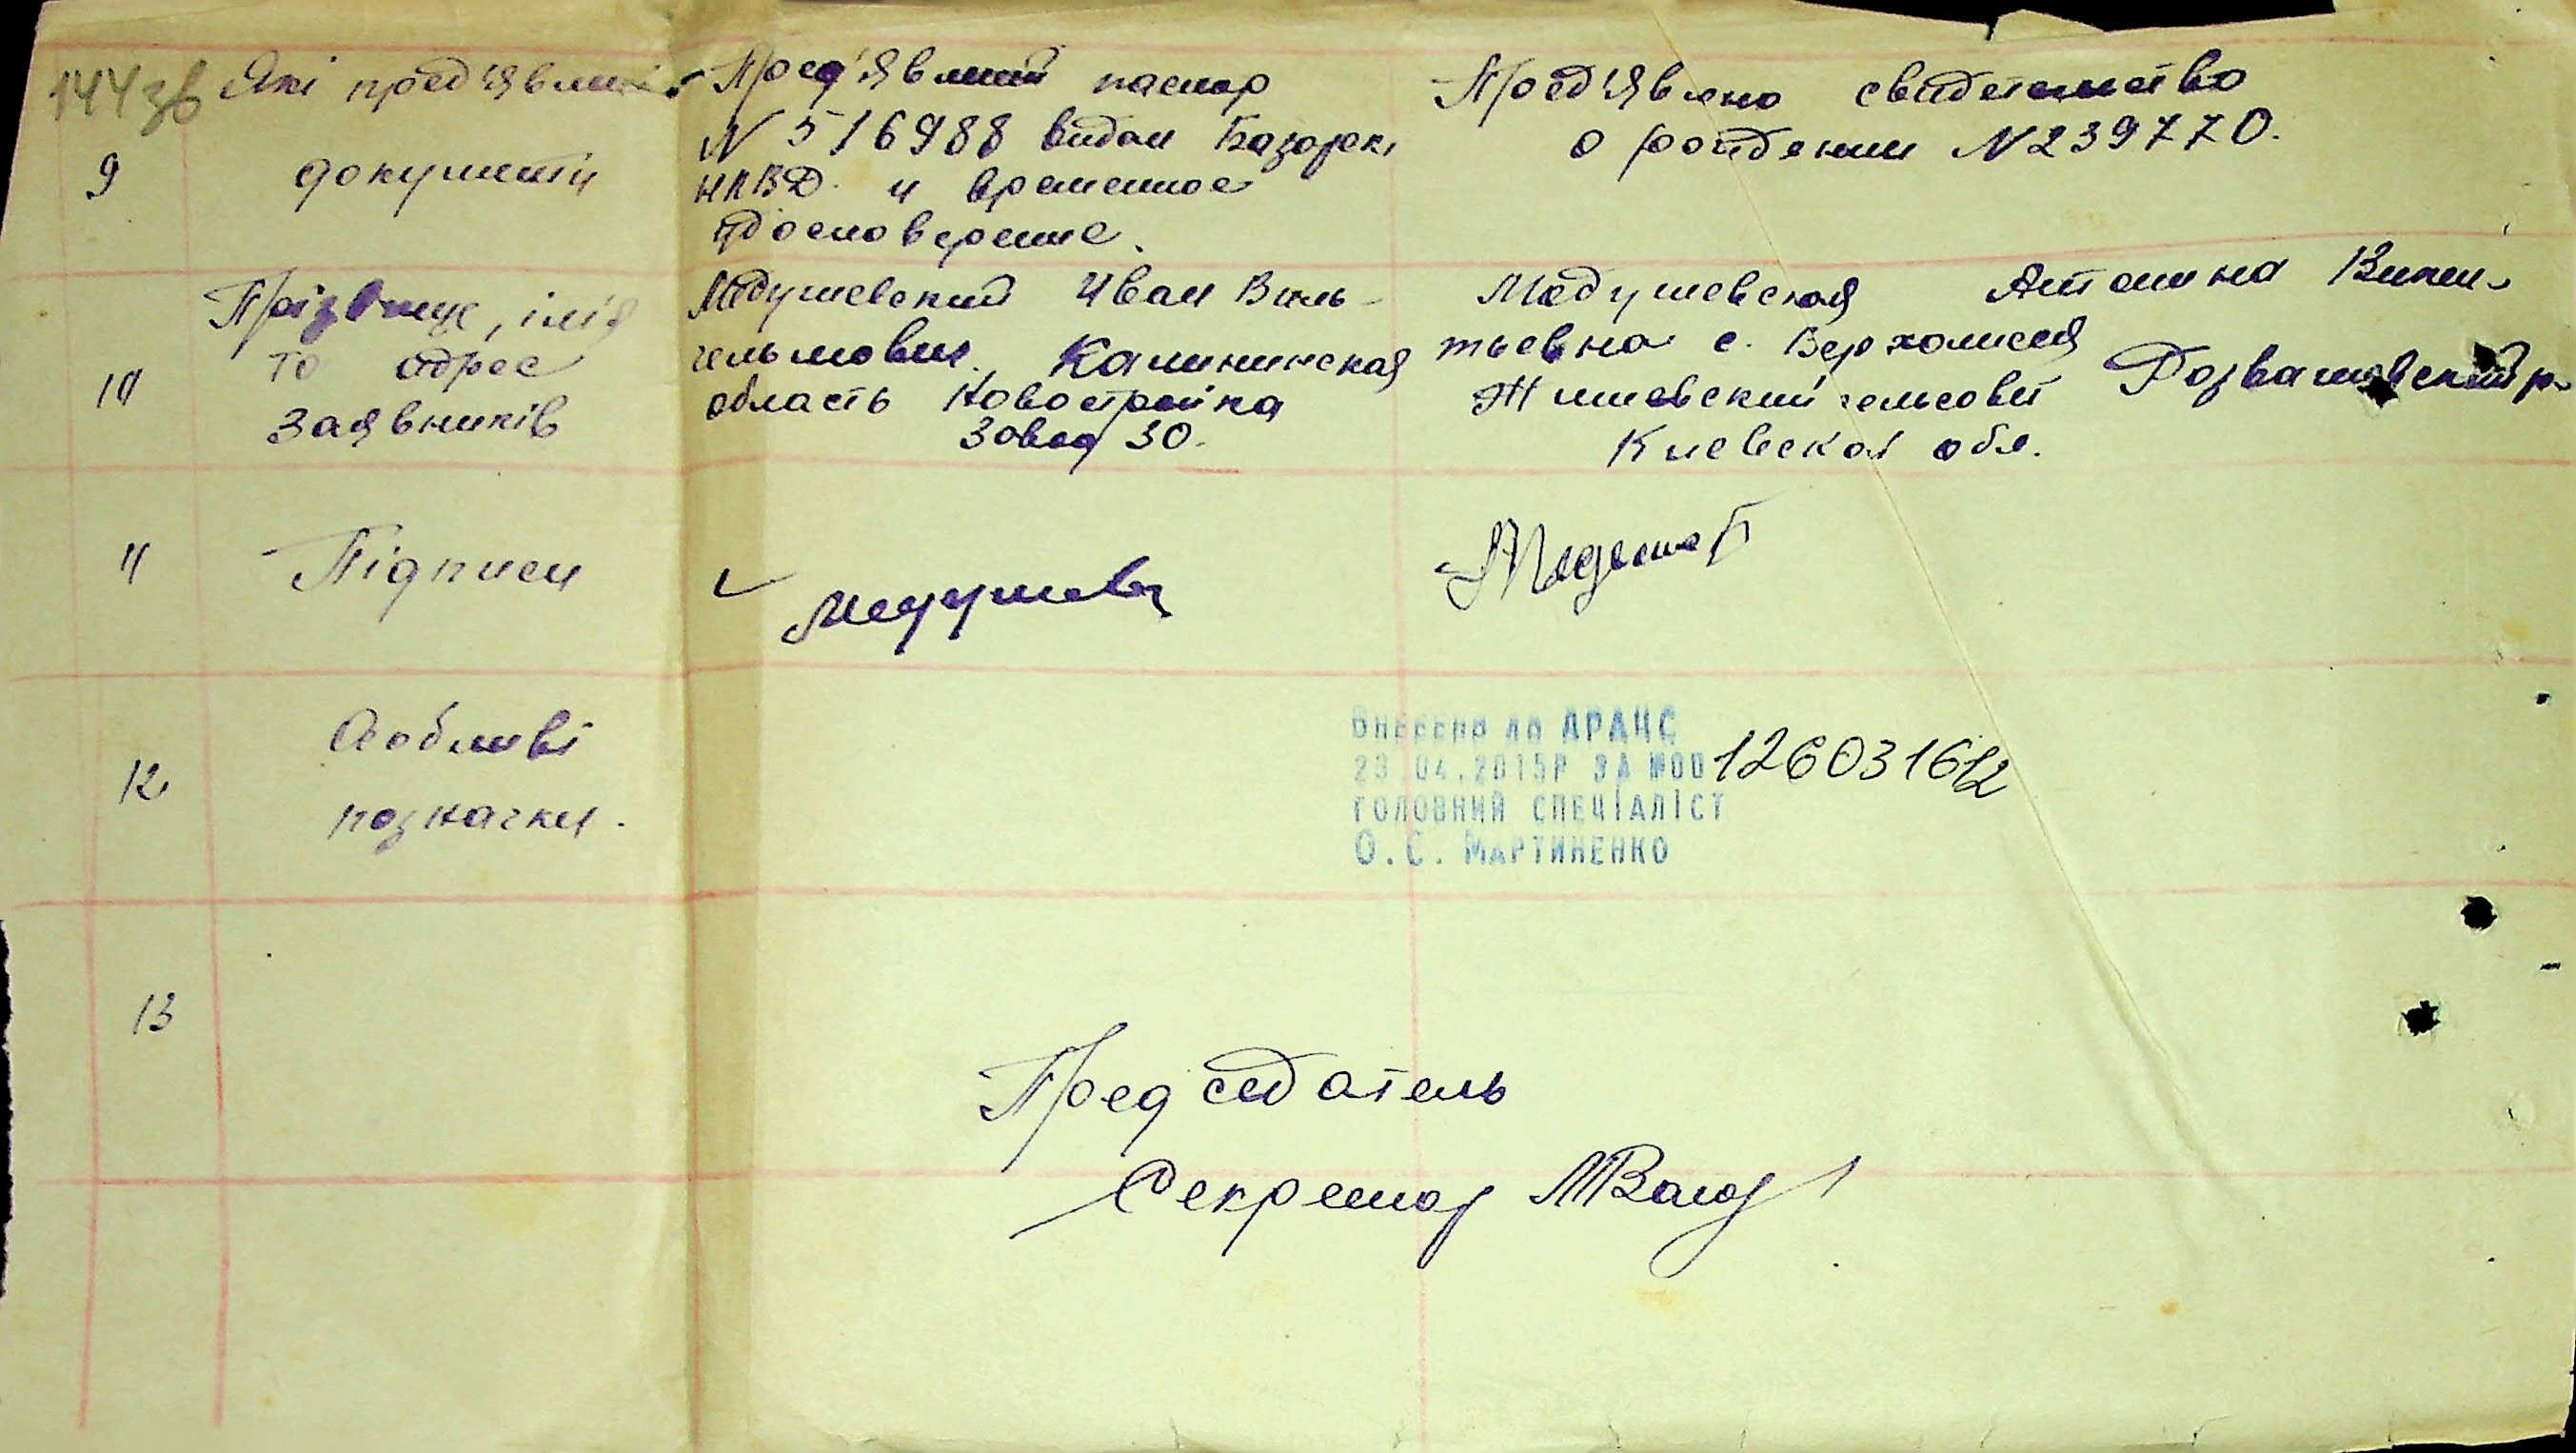 144зв
9
Які пред'явлені
документи
Пред'явлений паспор
N 516988 видан Базарск.
НКВД и временное
удостоверение.
Пред'явлено свидетельство
о рождении N 239770.
10
Прізвище, ім'я
та адрес
заявників
Медушевский Иван Виль-
гельмович. Калининская
область Новостройка
Завод 30.
Медушевская Антонина Викен-
тьевна с. Верхолесся
сельсовет Розважевский р-
Киевской обл.
11
Підписи
Медушевск
12
Особливі
позначки.
Внесено до ДРАЦС
23.04.2015Р ЗА №00 126031612
ГОЛОВНИЙ СПЕЦІАЛІСТ
О.С. МАРТИНЕНКО
13
Председатель
Секретар